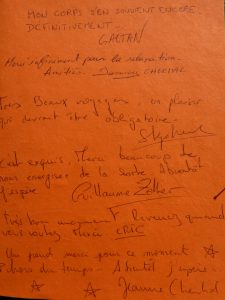 MON CORPS S'EN SOUVIENT ENCORE
DEFINITIVEMENT.
GAETAN
Merci infiniment pour la relaxation.
Amitiés. Dominique
Très Beaux voyages, un plaisir
qui devrait être obligatoire.
C'est exquis. Merci beaucoup de
nous energiser de la sorte. A bientôt
j'espère
Guillaume Zoller
Très bon moment! Revenez quand
vous voulez, Merci ERIC
Un grand merci pour ce moment
hors du temps. A bientôt j'espère.
Jeanne